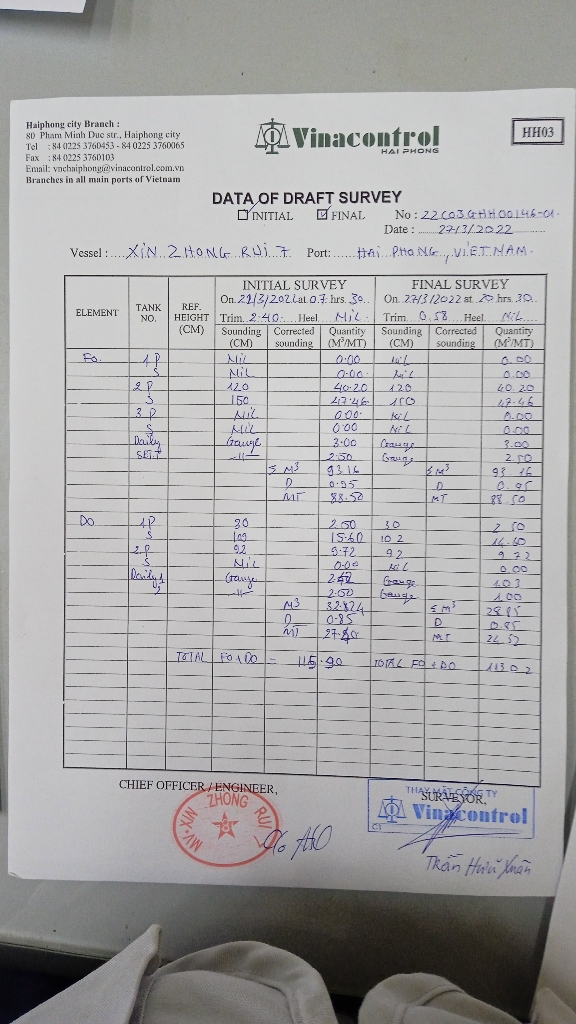 Haiphong city Branch :
80 Pham Minh Duc str., Haiphong city
Tel : 84 0225 3760453 - 84 0225 3760065
Fax : 84 0225 3760103
Email: vnchaiphong@vinacontrol.com.vn
Branches in all main ports of Vietnam
Vinacontrol
HAI PHONG
HH03
DATA OF DRAFT SURVEY
INITIAL FINAL No : 22C03GHH00146-01
Date : 27/3/2022
Vessel : XIN ZHONG RUI 7 Port: HAI PHONG, VIETNAM.
ELEMENT TANK NO. REF. HEIGHT (CM) INITIAL SURVEY FINAL SURVEY
On 21/3/2022 at 07 hrs. 30 On 27/3/2022 at 20 hrs. 30
Trim 2.40 Heel NiL Trim 0.58 Heel NiL
Sounding (CM) Corrected sounding Quantity (M³/MT) Sounding (CM) Corrected sounding Quantity (M³/MT)
Fo 1 P NiL 0.00 NiL 0.00
S NiL 0.00 NiL 0.00
2 P 120 40.20 120 40.20
S 150 47.46 150 47.46
3 P NiL 0.00 NiL 0.00
S NiL 0.00 NiL 0.00
Daily Gauge 3.00 Gauge 3.00
SETT -11- 2.50 Gauge 2.50
Σ M³ 93.16 Σ M³ 93.16
D 0.95 D 0.95
MT 88.50 MT 88.50
Do 1P 30 2.50 30 2.50
S 109 15.60 102 14.60
2P 92 9.72 92 9.72
S NiL 0.00 NiL 0.00
Daily Gauge Gauge 1.03
S -11- 2.50 Gauge 1.00
M³ Σ M³ 28.85
D 0.85 D 0.85
MT MT 24.52
TOTAL FO + DO = 115.90 TOTAL FO + DO 113.02
CHIEF OFFICER / ENGINEER,
THAY MẶT CÔNG TY
SURVEYOR,
Vinacontrol
MV. XIN ZHONG RUI 7
Trần Hữu Xuân